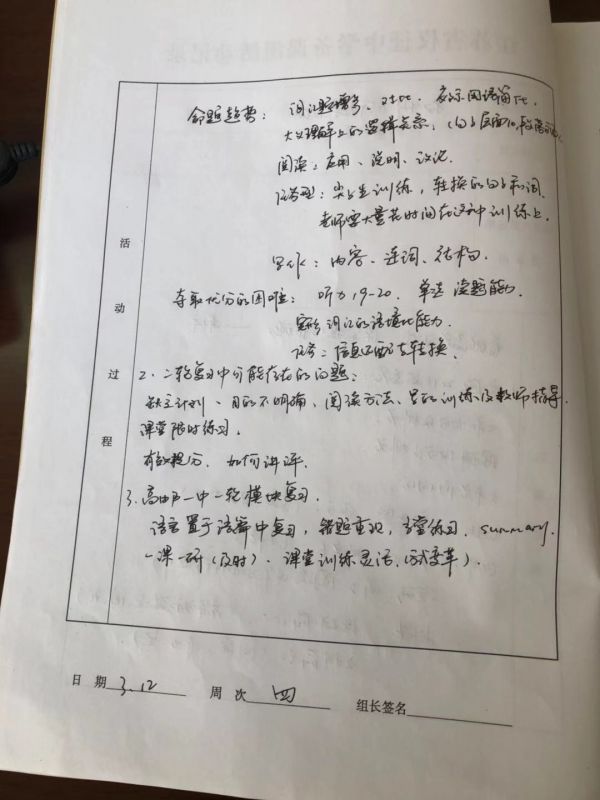 命题趋势： 词汇题增多、对比、
大义理解上的逻辑关系，（句子层面，段落
阅读：应用、说明、议论.
任务型：尖子生训练，转换的句子和词.
老师要大量花时间在这种训练上.
写作：内容、连词、结构.
夺取优分的困难： 听力 19-20. 单选 读题能力.
完形 词汇的语境化能力.
任务：信息匹配与转换.
2. 二轮复习中可能存在的问题：
缺乏计划、目的不明确、阅读方法、 的训练及教师指导.
课堂限时练习.
有效提分. 如何讲评.
3. 高邮一中一轮模块复习.
语言置于语篇中复习，错题重现，当堂练习. summary.
一课一研（及时）. 课堂训练灵活.（ 变革）.
活
动
过
程
日 期 3.12 周 次 四 组长签名